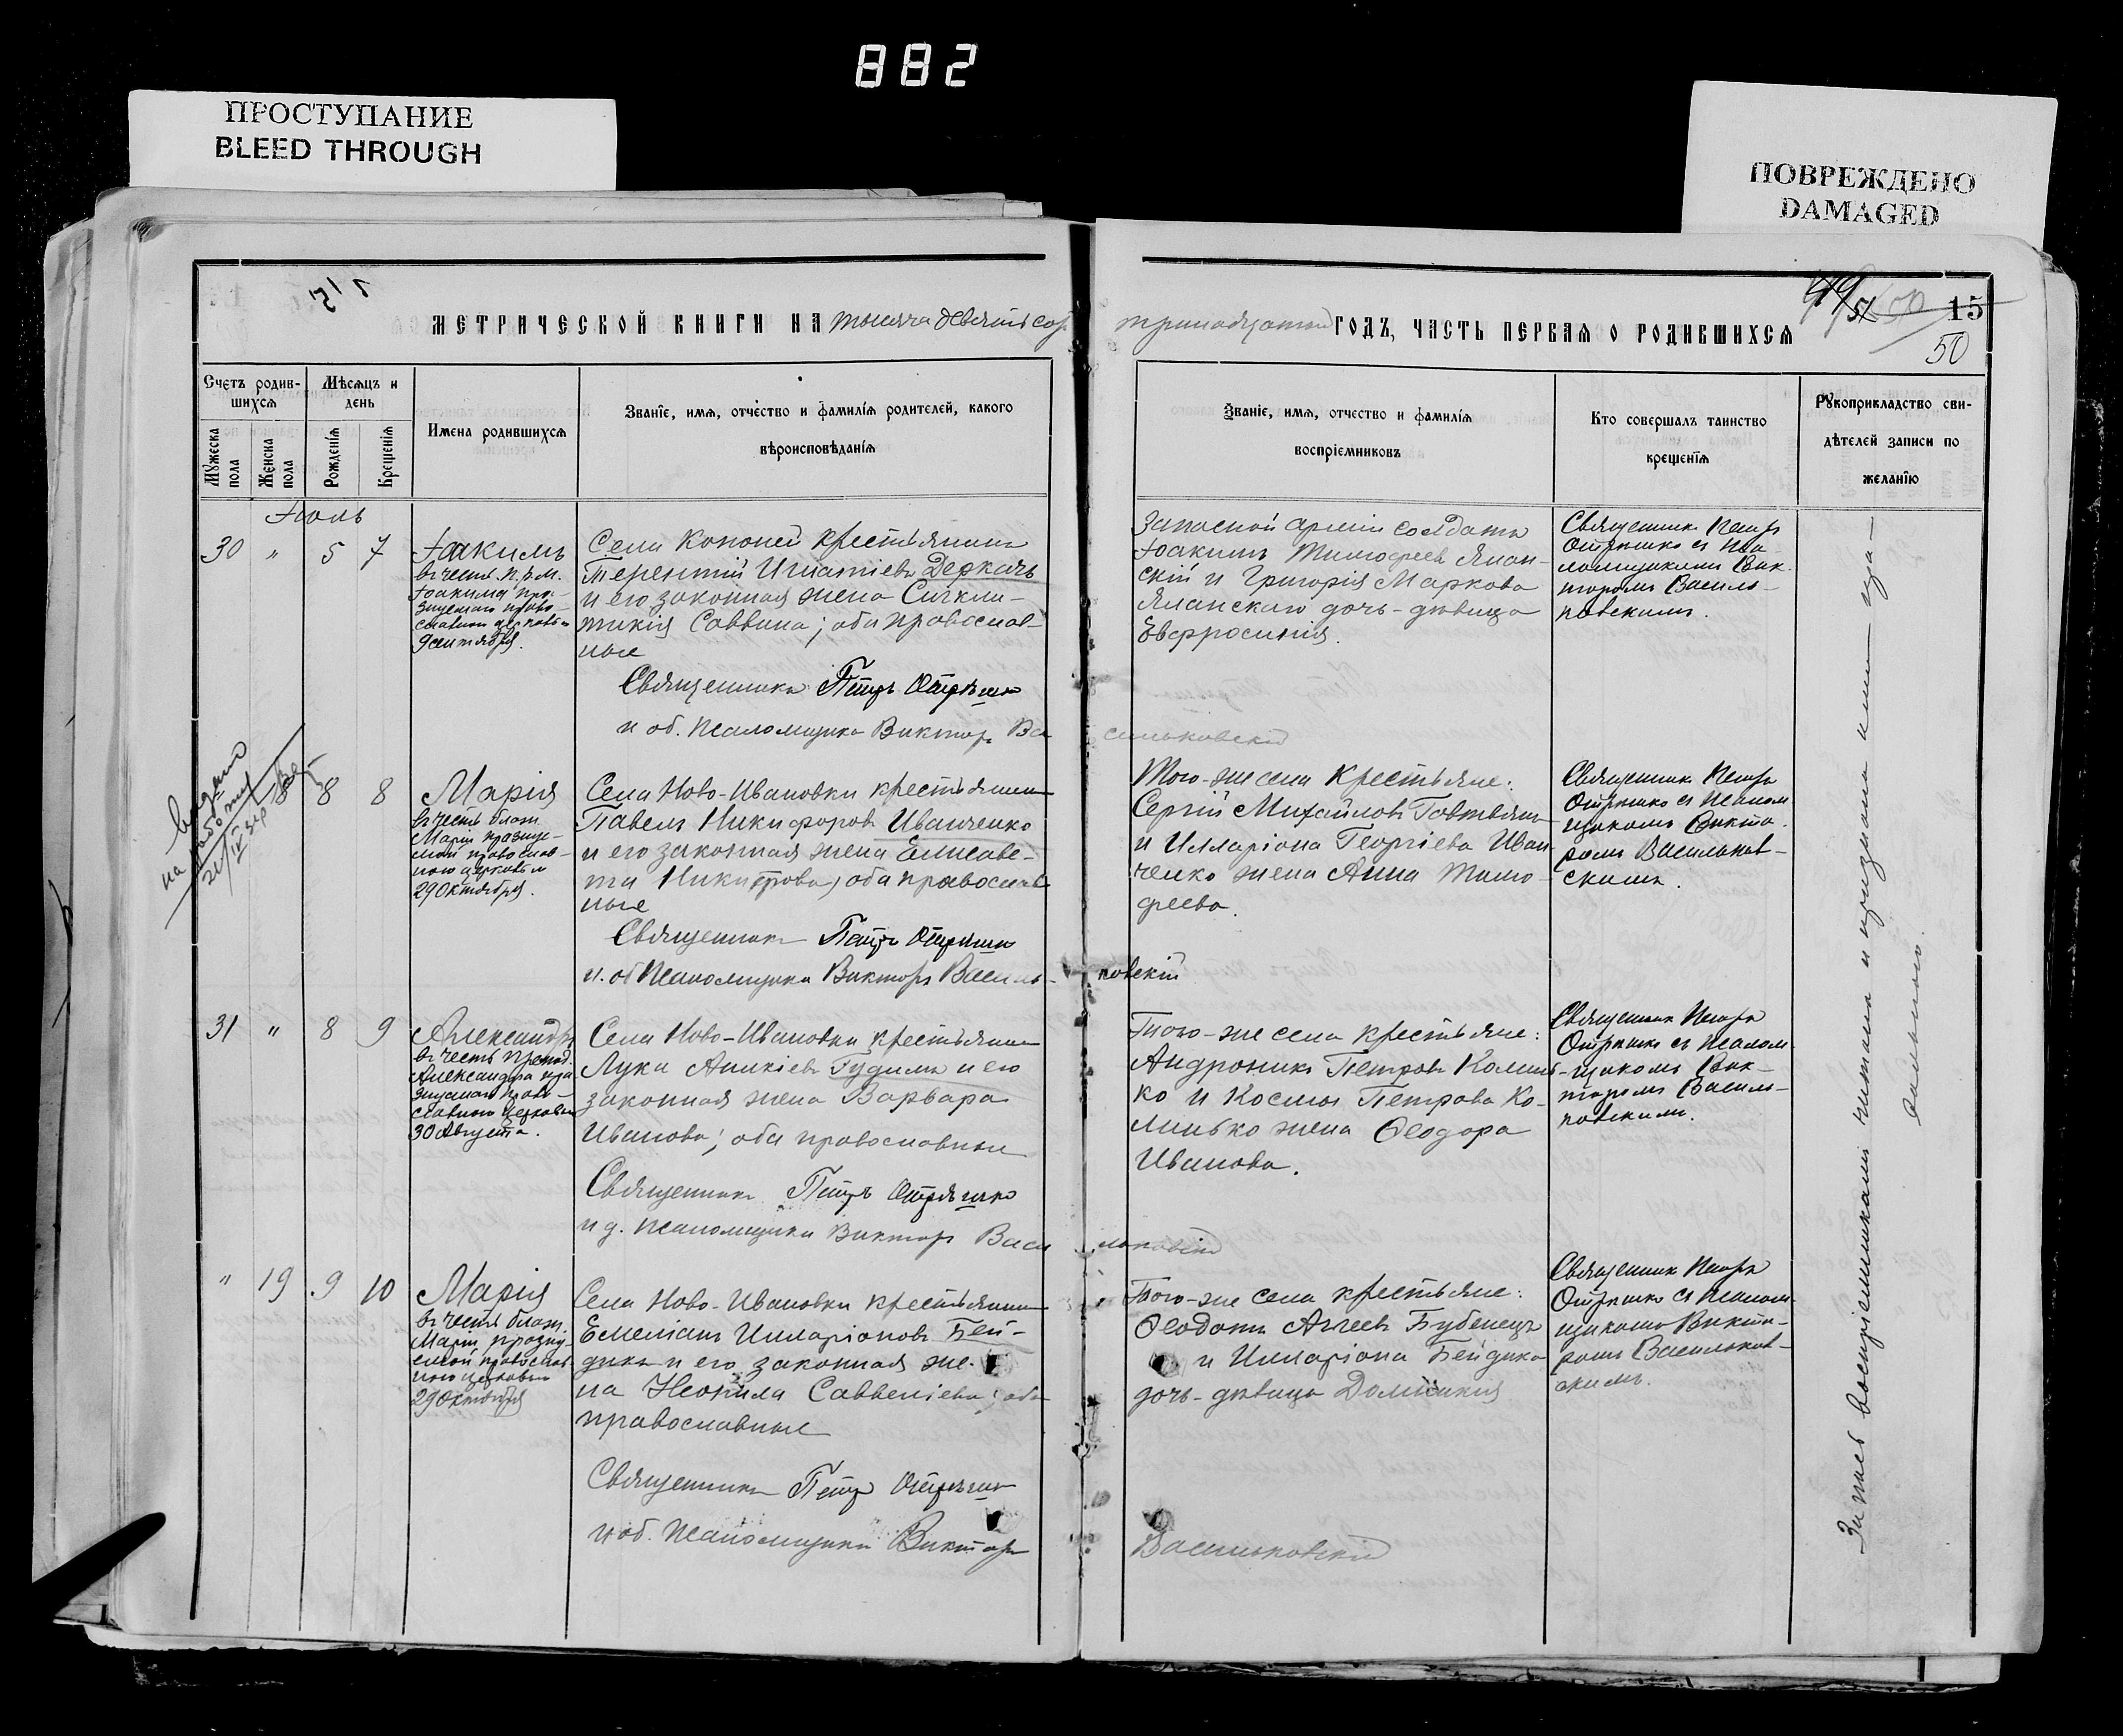 882
ПРОСТУПАНИЕ
BLEED THROUGH
ПОВРЕЖДЕНО
DAMAGED
МЕТРИЧЕСКОЙ КНИГИ НА тысяча девятьсот
тринадцатый ГОДЪ, ЧАСТЬ ПЕРВАЯ О РОДИВШИХСЯ
15
50
Счетъ родив-
шихся
Мѣсяцъ и
день
Мужеска
пола
Женска
пола
Рожденія
Крещенія
Имена родившихся
Званіе, имя, отчество и фамилія родителей, какого
вѣроисповѣданія
Званіе, имя, отчество и фамилія
воспріемниковъ
Кто совершалъ таинство
крещенія
Рукоприкладство сви-
дѣтелей записи по
желанію
Іюль
30 " 5 7
Іоакимъ
въ честь
Іоакима праз-
днуемаго право-
славной церковью
9 сентября.
Села крестьянинъ
Терентій Игнатіевъ Деркачъ
и его законная жена Синкли-
тикія Саввина; оба православ-
ные
Священникъ Петръ Отрѣшко
и об. псаломщика Викторъ Ва
сильковскій
Запасной арміи солдатъ
Іоакимъ Тимофеевъ Ялан-
скій и Григорія Маркова
Яланскаго дочь-дѣвица
Евфросинія.
Священникъ Петръ
Отрѣшко съ пса-
ломщикомъ Вик-
торомъ Василь-
ковскимъ.
выдано
на работы
8 8
Марія
въ честь блаж.
Маріи праздну-
емой православ-
ною церковью
29 октября.
Села Ново-Ивановки крестьянинъ
Павелъ Никифоровъ Иванченко
и его законная жена Елисаве-
та Никитова, оба православ
ные
Священникъ Петръ Отрѣшко
и. об псаломщика Викторъ Василь-
ковскій
Того-же села крестьяне:
Сергій Михайловъ Говтвянъ
и Илларіона Георгіева Иван
ченко жена Анна Тимо-
феева.
Священникъ Петръ
Отрѣшко съ псалом
щикомъ Викто-
ромъ Васильков-
скимъ.
31 " 8 9
Александръ
въ честь препод.
Александра пра
зднуемаго право-
славною церковью
30 Августа.
Села Ново-Ивановки крестьянинъ
Лука Аникіевъ Гудимъ и его
законная жена Варвара
Иванова; оба православные
Священникъ Петръ Отрѣшко
и д. псаломщика Викторъ Васи
льковскій
Того-же села крестьяне:
Андроникъ Петровъ Колинь-
ко и Космы Петрова Ко-
линько жена Ѳеодора
Иванова.
Священникъ Петръ
Отрѣшко съ псалом
щикомъ Вик-
торомъ Василь-
ковскимъ.
" 19 9 10
Марія
въ честь блаж.
Маріи, праздну-
емой православ
ною церковью
29 октября
Села Ново-Ивановки крестьянинъ
Емеліанъ Илларіоновъ Бей-
дикъ и его законная же-
на Неонила Савветіева; оба
православные
Священникъ Петръ Отрѣшко
и об. псаломщика Викторъ
Васильковскій
Того-же села крестьяне:
Ѳеодотъ Аггеевъ Бубенецъ
и Илларіона Бейдика
дочь-дѣвица Домникія
Священникъ Петръ
Отрѣшко съ псалом
щикомъ Викто-
ромъ Васильков-
скимъ.
Запись воспріемниками читана и признана ими пра-
вильною.